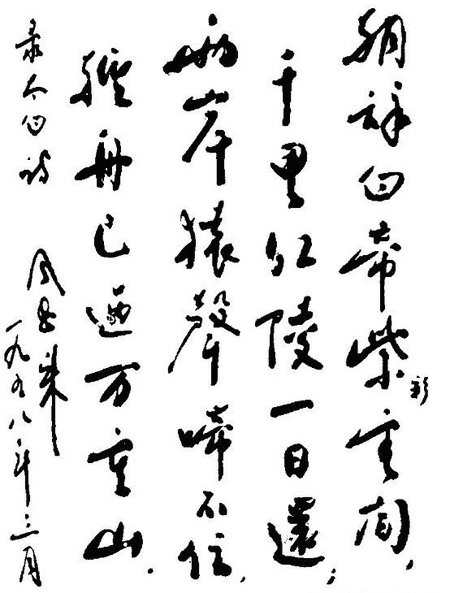 朝辞白帝紫云间，
彩
千里江陵一日還；
两岸猿聲啼不住，
轻舟已過万重山．
录太白诗
周恩来
一九五八年三月